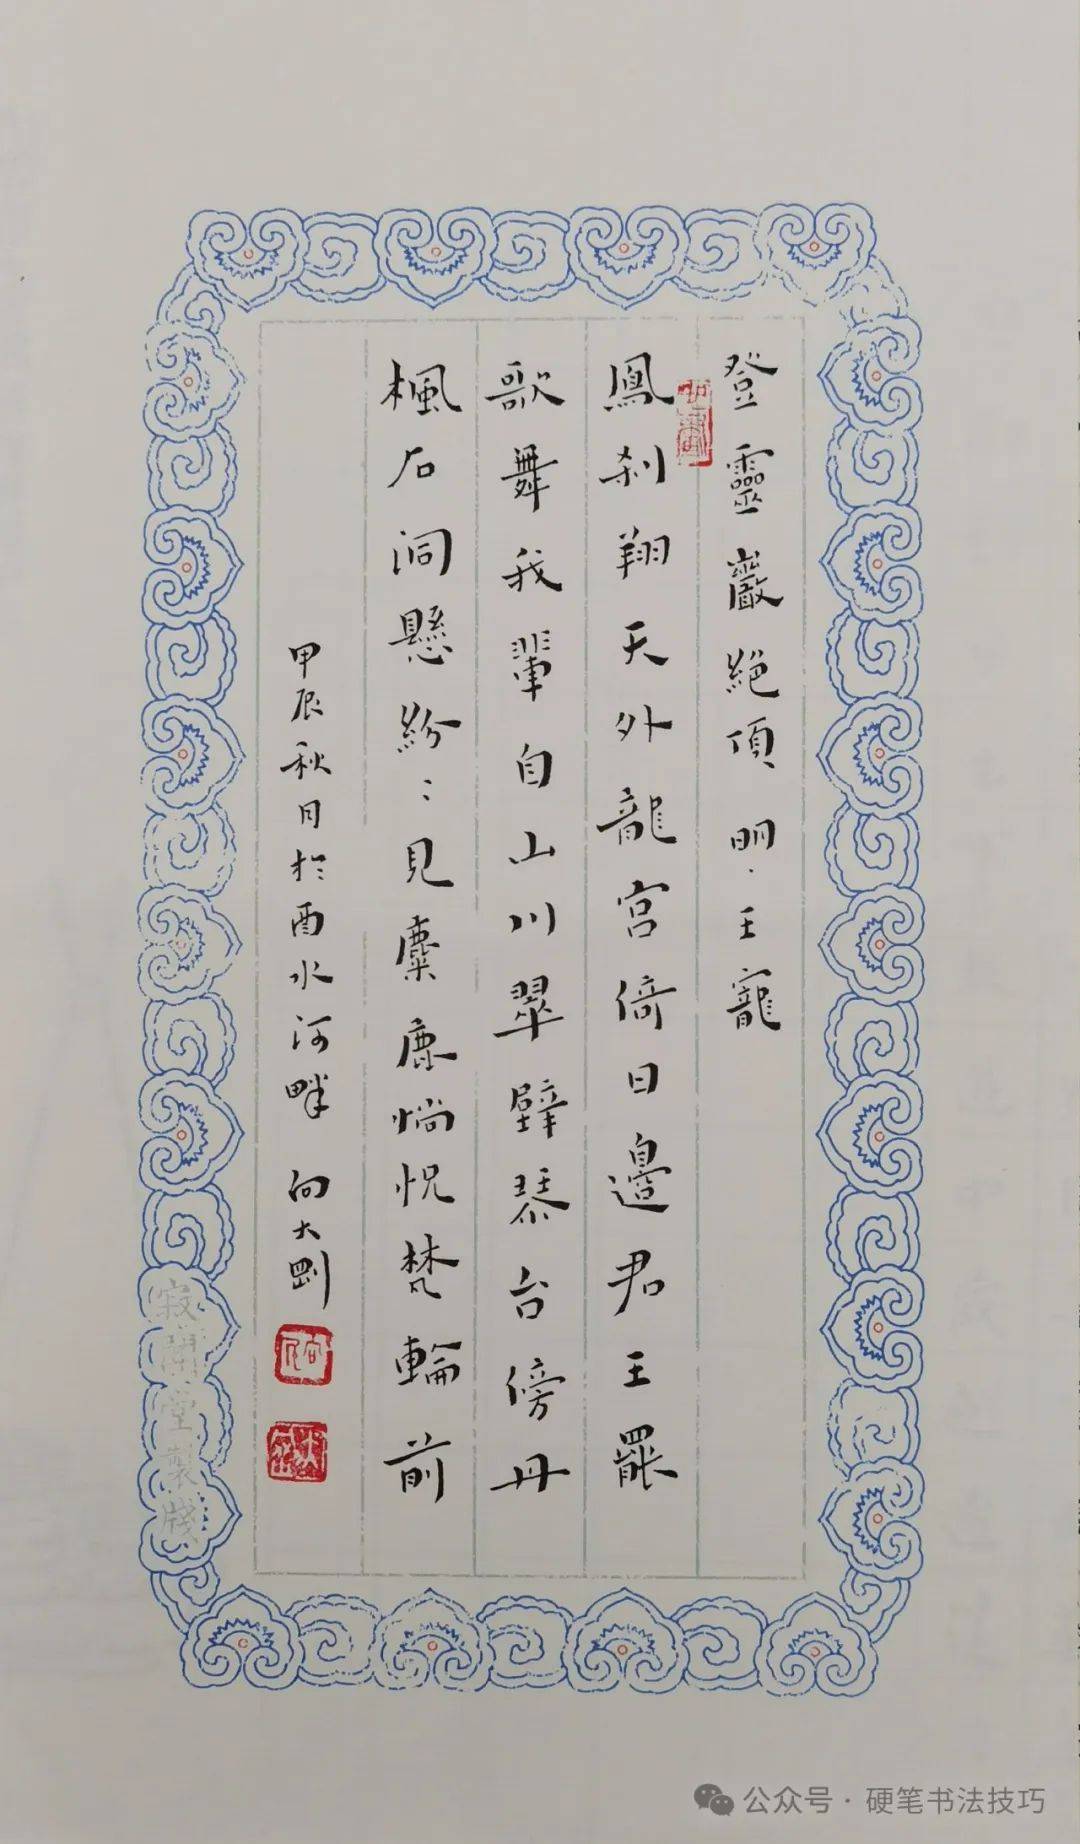 登靈巖絕頂 明·王寵
鳳刹翔天外龍宮倚日邊君王罷
歌舞我輩自山川翠壁琴台傍丹
楓石洞懸紛〻見麋鹿惝怳梵輪前
甲辰秋月於酉水河畔 向大剛
寂閑堂製牋
公众号·硬笔书法技巧